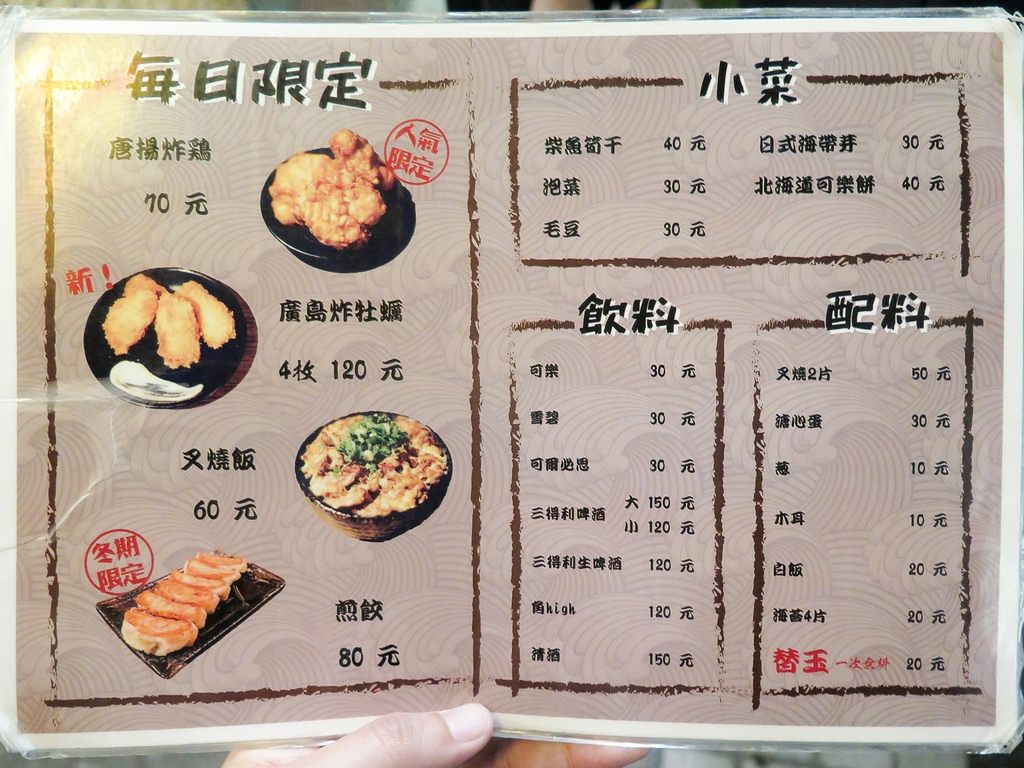 每日限定
唐揚炸鶏
70 元
人氣
限定
新！
廣島炸牡蠣
4枚 120 元
叉燒飯
60 元
冬期
限定
煎餃
80 元
小菜
柴魚筍干 40 元 日式海帶芽 30 元
泡菜 30 元 北海道可樂餅 40 元
毛豆 30 元
飲料
可樂 30 元
雪碧 30 元
可爾必思 30 元
三得利啤酒 大 150 元
小 120 元
三得利生啤酒 120 元
角high 120 元
清酒 150 元
配料
叉燒2片 50 元
溏心蛋 30 元
蔥 10 元
木耳 10 元
白飯 20 元
海苔4片 20 元
替玉 一次食料 20 元